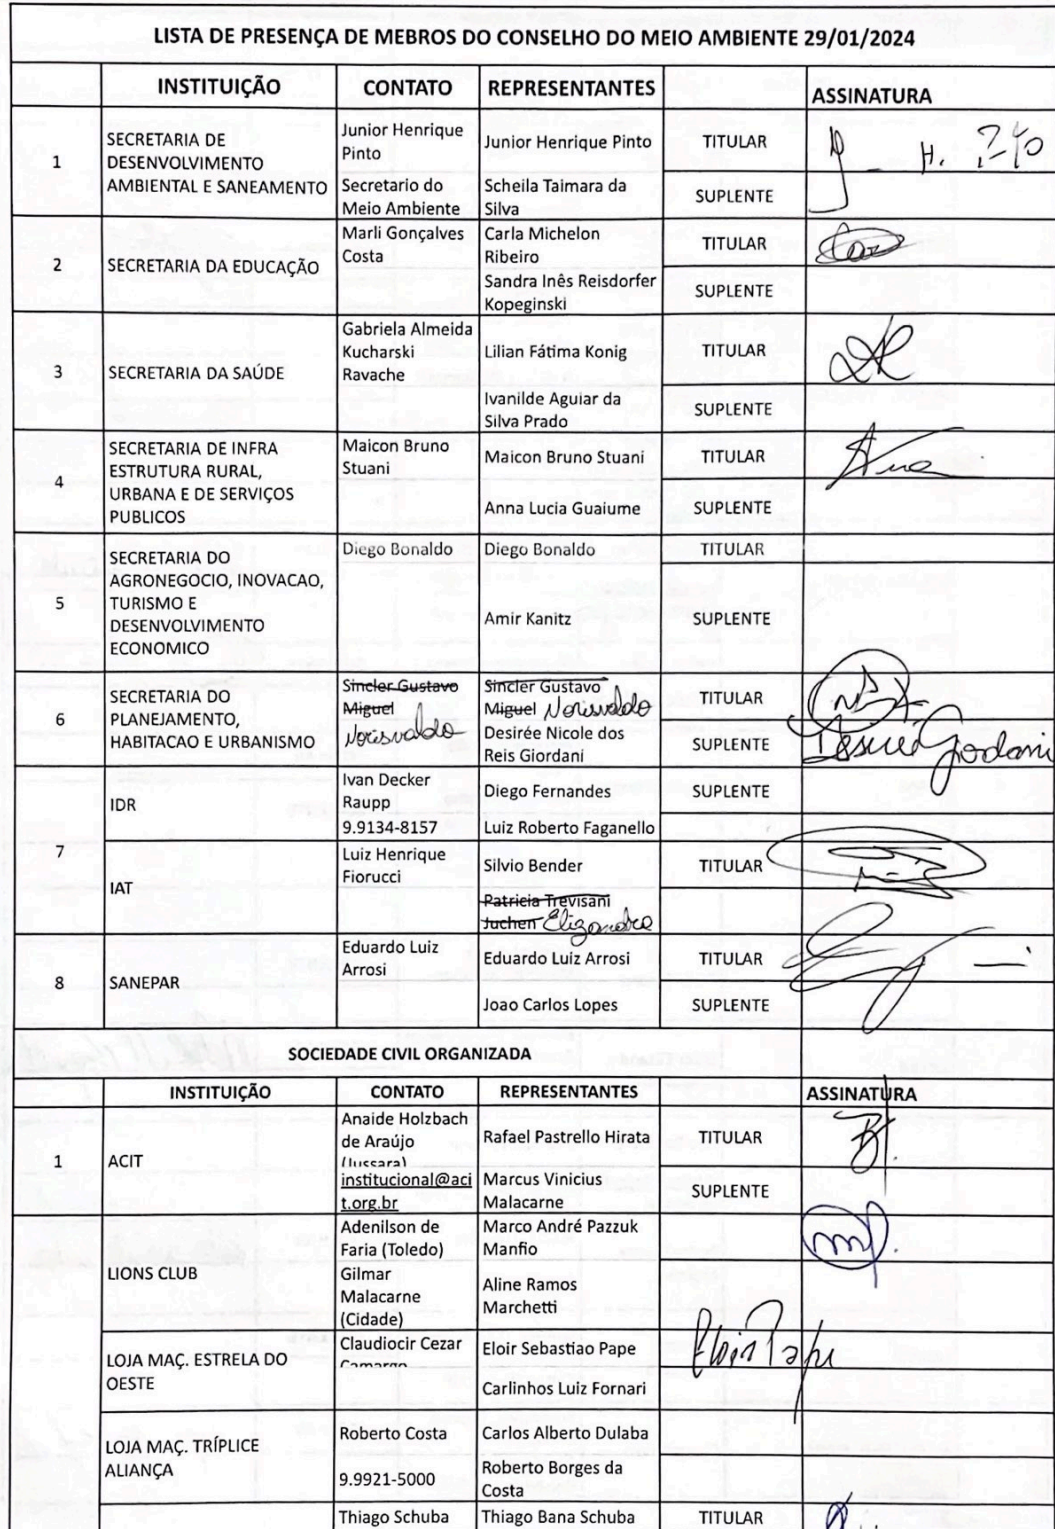 LISTA DE PRESENÇA DE MEBROS DO CONSELHO DO MEIO AMBIENTE 29/01/2024
INSTITUIÇÃO CONTATO REPRESENTANTES ASSINATURA
1
SECRETARIA DE
DESENVOLVIMENTO
AMBIENTAL E SANEAMENTO
Junior Henrique
Pinto
Junior Henrique Pinto
TITULAR
H.
Secretario do
Meio Ambiente
Scheila Taimara da
Silva
SUPLENTE
2
SECRETARIA DA EDUCAÇÃO
Marli Gonçalves
Costa
Carla Michelon
Ribeiro
TITULAR
Sandra Inês Reisdorfer
Kopeginski
SUPLENTE
3
SECRETARIA DA SAÚDE
Gabriela Almeida
Kucharski
Ravache
Lilian Fátima Konig
TITULAR
Ivanilde Aguiar da
Silva Prado
SUPLENTE
4
SECRETARIA DE INFRA
ESTRUTURA RURAL,
URBANA E DE SERVIÇOS
PUBLICOS
Maicon Bruno
Stuani
Maicon Bruno Stuani
TITULAR
Anna Lucia Guaiume
SUPLENTE
5
SECRETARIA DO
AGRONEGOCIO, INOVACAO,
TURISMO E
DESENVOLVIMENTO
ECONOMICO
Diego Bonaldo
Diego Bonaldo
TITULAR
Amir Kanitz
SUPLENTE
6
SECRETARIA DO
PLANEJAMENTO,
HABITACAO E URBANISMO
Sincler Gustavo
Miguel
Norisvaldo
Sincler Gustavo
Miguel Norisvaldo
TITULAR
Desirée Nicole dos
Reis Giordani
SUPLENTE
7
IDR
Ivan Decker
Raupp
Diego Fernandes
SUPLENTE
9.9134-8157
Luiz Roberto Faganello
IAT
Luiz Henrique
Fiorucci
Silvio Bender
TITULAR
Patricia Trevisani
Juchen Elizandra
8
SANEPAR
Eduardo Luiz
Arrosi
Eduardo Luiz Arrosi
TITULAR
Joao Carlos Lopes
SUPLENTE
SOCIEDADE CIVIL ORGANIZADA
INSTITUIÇÃO CONTATO REPRESENTANTES ASSINATURA
1
ACIT
Anaide Holzbach
de Araújo
(Jussara)
Rafael Pastrello Hirata
TITULAR
institucional@aci
t.org.br
Marcus Vinicius
Malacarne
SUPLENTE
LIONS CLUB
Adenilson de
Faria (Toledo)
Marco André Pazzuk
Manfio
Gilmar
Malacarne
(Cidade)
Aline Ramos
Marchetti
LOJA MAÇ. ESTRELA DO
OESTE
Claudiocir Cezar
Camargo
Eloir Sebastiao Pape
Eloir Pape
Carlinhos Luiz Fornari
LOJA MAÇ. TRÍPLICE
ALIANÇA
Roberto Costa
Carlos Alberto Dulaba
9.9921-5000
Roberto Borges da
Costa
Thiago Schuba
Thiago Bana Schuba
TITULAR